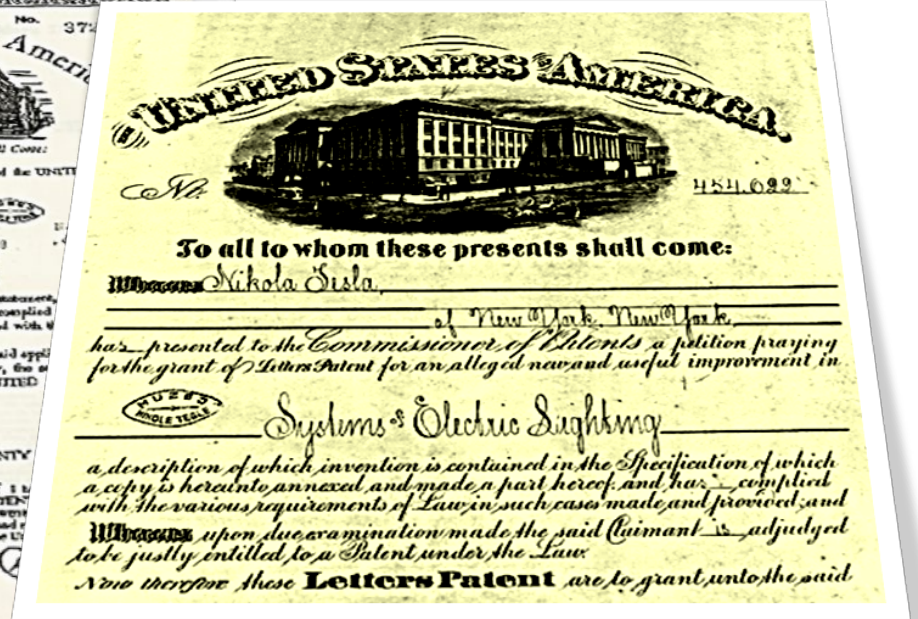 No. 372
Americ
The UNITED STATES OF AMERICA.
No. 454,622
To all to whom these presents shall come:
Whereas Nikola Tesla,
of New York, New York,
has presented to the Commissioner of Patents a petition praying
for the grant of Letters Patent for an alleged new and useful improvement in
MUZEJ
NIKOLE TESLE
Systems of Electric Lighting
a description of which invention is contained in the Specification of which
a copy is hereunto annexed and made a part hereof, and has complied
with the various requirements of Law in such cases made and provided, and
Whereas upon due examination made the said Claimant is adjudged
to be justly entitled to a Patent under the Law.
Now therefore these Letters Patent are to grant unto the said